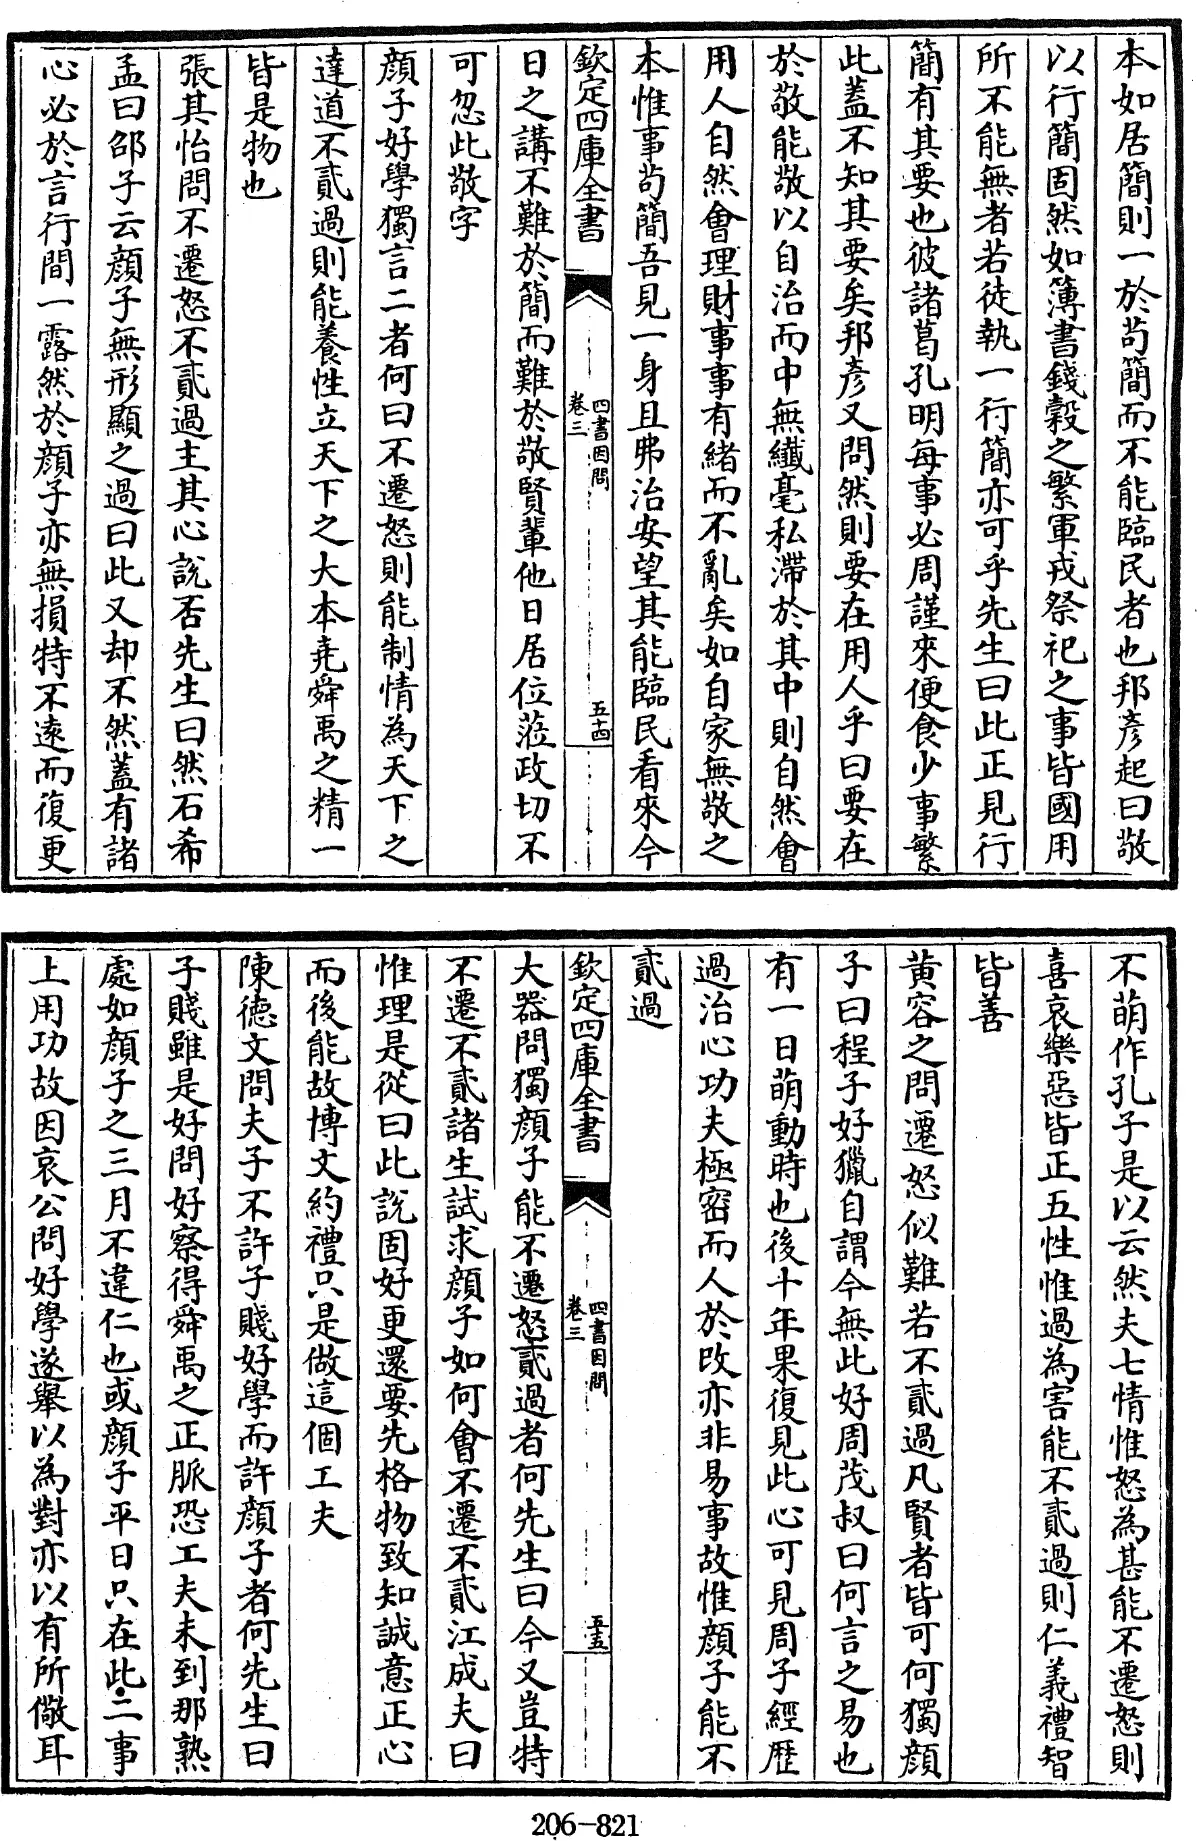 本如居簡則一於茍簡而不能臨民者也邦彥起曰敬
以行簡固然如簿書錢穀之繁軍戎祭祀之事皆國用
所不能無者若徒執一行簡亦可乎先生曰此正見行
簡有其要也彼諸葛孔明每事必周謹來便食少事繁
此蓋不知其要矣邦彥又問然則要在用人乎曰要在
於敬能敬以自治而中無纖毫私滯於其中則自然會
用人自然會理財事事有緒而不亂矣如自家無敬之
本惟事茍簡吾見一身且弗治安望其能臨民看來今
欽定四庫全書 四書因問 卷三 五十四
日之講不難於簡而難於敬賢輩他日居位蒞政切不
可忽此敬字
顔子好學獨言二者何曰不遷怒則能制情為天下之
達道不貳過則能養性立天下之大本堯舜禹之精一
皆是物也
張其怡問不遷怒不貳過主其心說否先生曰然石希
孟曰邵子云顔子無形顯之過曰此又却不然蓋有諸
心必於言行間一露然於顔子亦無損特不遠而復更
不萌作孔子是以云然夫七情惟怒為甚能不遷怒則
喜哀樂惡皆正五性惟過為害能不貳過則仁義禮智
皆善
黄容之問遷怒似難若不貳過凡賢者皆可何獨顔
子曰程子好獵自謂今無此好周茂叔曰何言之易也
有一日萌動時也後十年果復見此心可見周子經歷
過治心功夫極密而人於改亦非易事故惟顔子能不
貳過
欽定四庫全書 四書因問 卷三 五十五
大器問獨顔子能不遷怒貳過者何先生曰今又豈特
不遷不貳諸生試求顔子如何會不遷不貳江成夫曰
惟理是從曰此說固好更還要先格物致知誠意正心
而後能故博文約禮只是做這個工夫
陳德文問夫子不許子賤好學而許顔子者何先生曰
子賤雖是好問好察得舜禹之正脈恐工夫未到那熟
處如顔子之三月不違仁也或顔子平日只在此二事
上用功故因哀公問好學遂舉以為對亦以有所儆耳
206-821